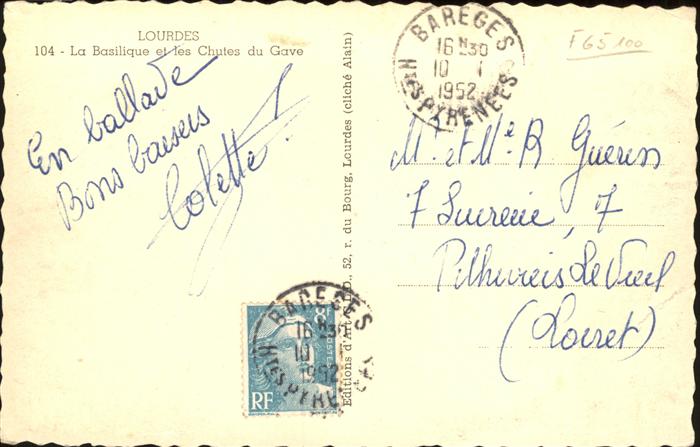 LOURDES
104 - La Basilique et les Chutes du Gave
En ballade
Bons baisers
Colette
Editions d'Art, 52, r. du Bourg, Lourdes (cliché Alain)
BARÈGES
16 H30
10 1
1952
HTES PYRENEES
F65100
Mr et Me R Guérin
7
7
Le Vieil
(Loiret)
BAREGES
16 H30
10
1952
HTES PYRENEES
POSTES
RF